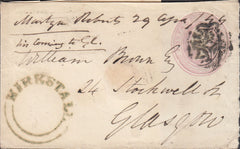 Martyn Roberts 29 Apr. 44
his coming to Gl.
William Brown Esq
24 Stockwell St
Glasgow
KIRKSTALL